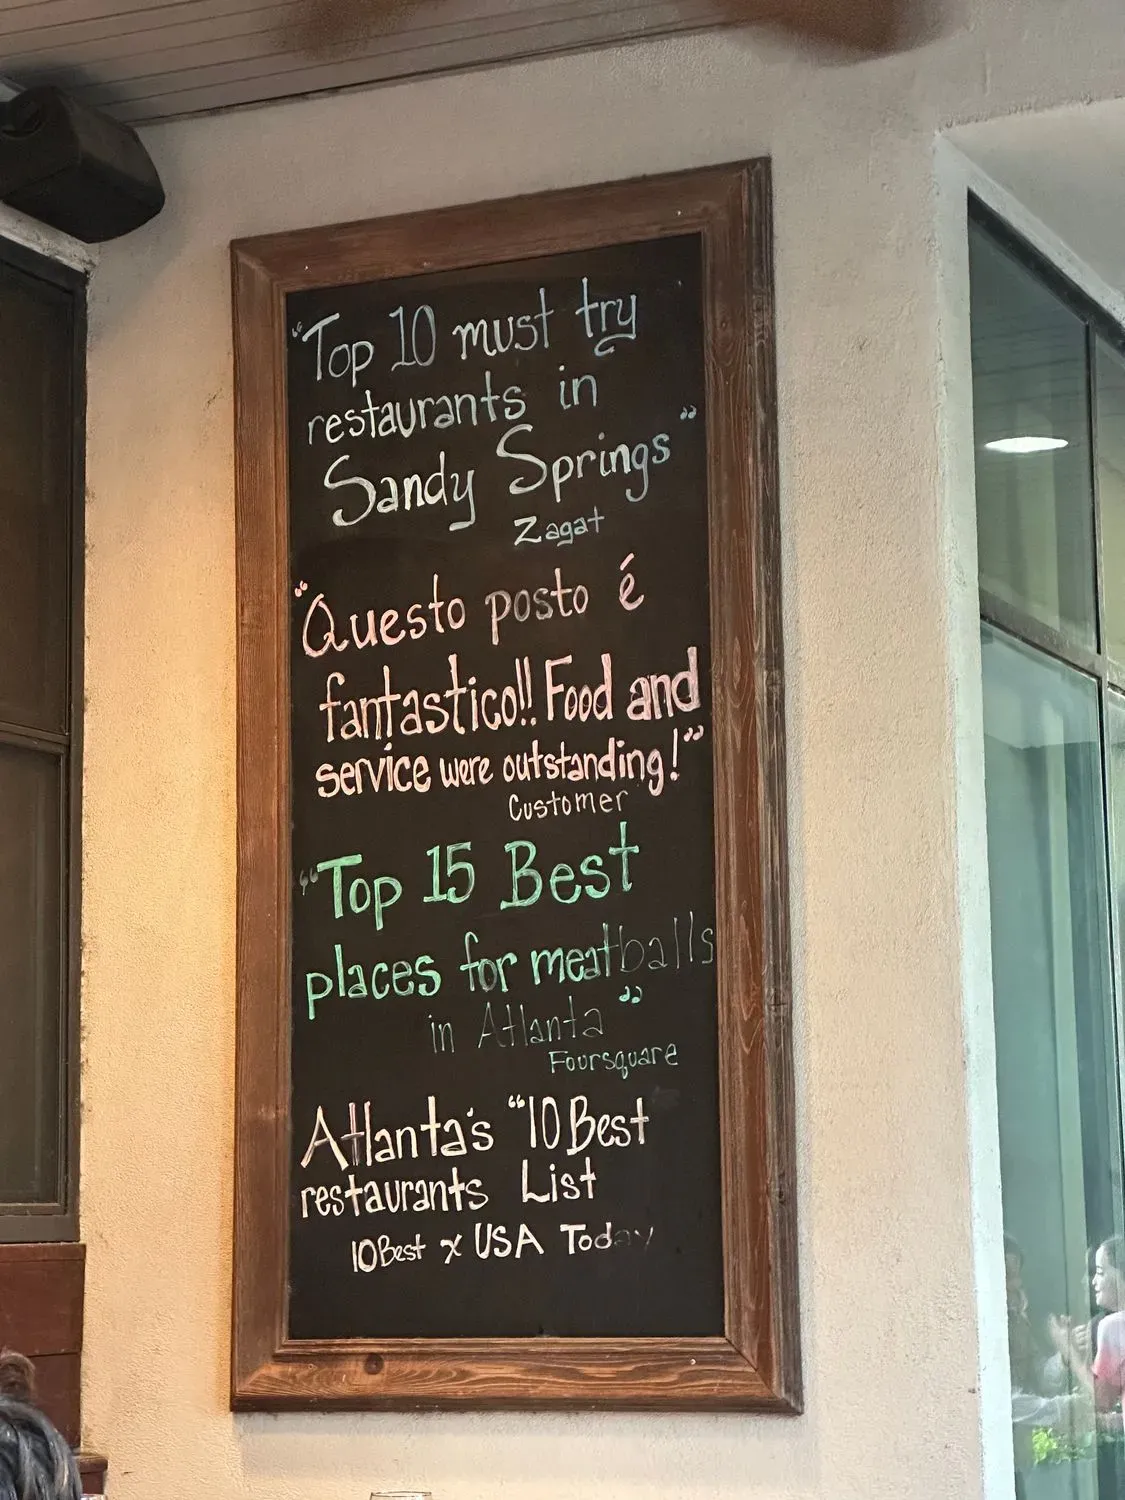 "Top 10 must try
restaurants in
Sandy Springs"
Zagat
"Questo posto é
fantastico!! Food and
service were outstanding!"
Customer
"Top 15 Best
places for meatballs
in Atlanta"
Foursquare
Atlanta's "10 Best
restaurants List
10Best x USA Today